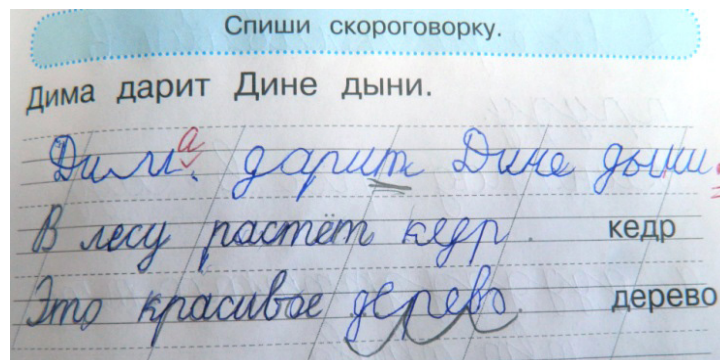 Спиши скороговорку.
Дима дарит Дине дыни.
Дима. дарит Дине дыни.
В лесу растёт кедр. кедр
Это красивое дерево. дерево